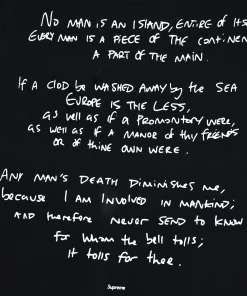 NO MAN IS AN ISLAND, ENTIRE OF ITS
EVERY MAN IS A PIECE OF THE CONTINEN
A PART OF THE MAIN.
IF A CLOD BE WASHED AWAY by THE SEA
EUROPE IS THE LESS,
as well as if A PROMONTORY WERE,
as well AS IF A MANOR of thy FRIENDS
OR of thine own WERE.
ANY MAN'S DEATH DIMINISHES me,
because I AM INVOLVED IN MANKIND;
AND therefore NEVER SEND TO KNOW
for whom the bell tolls;
it tolls for thee.
Supreme